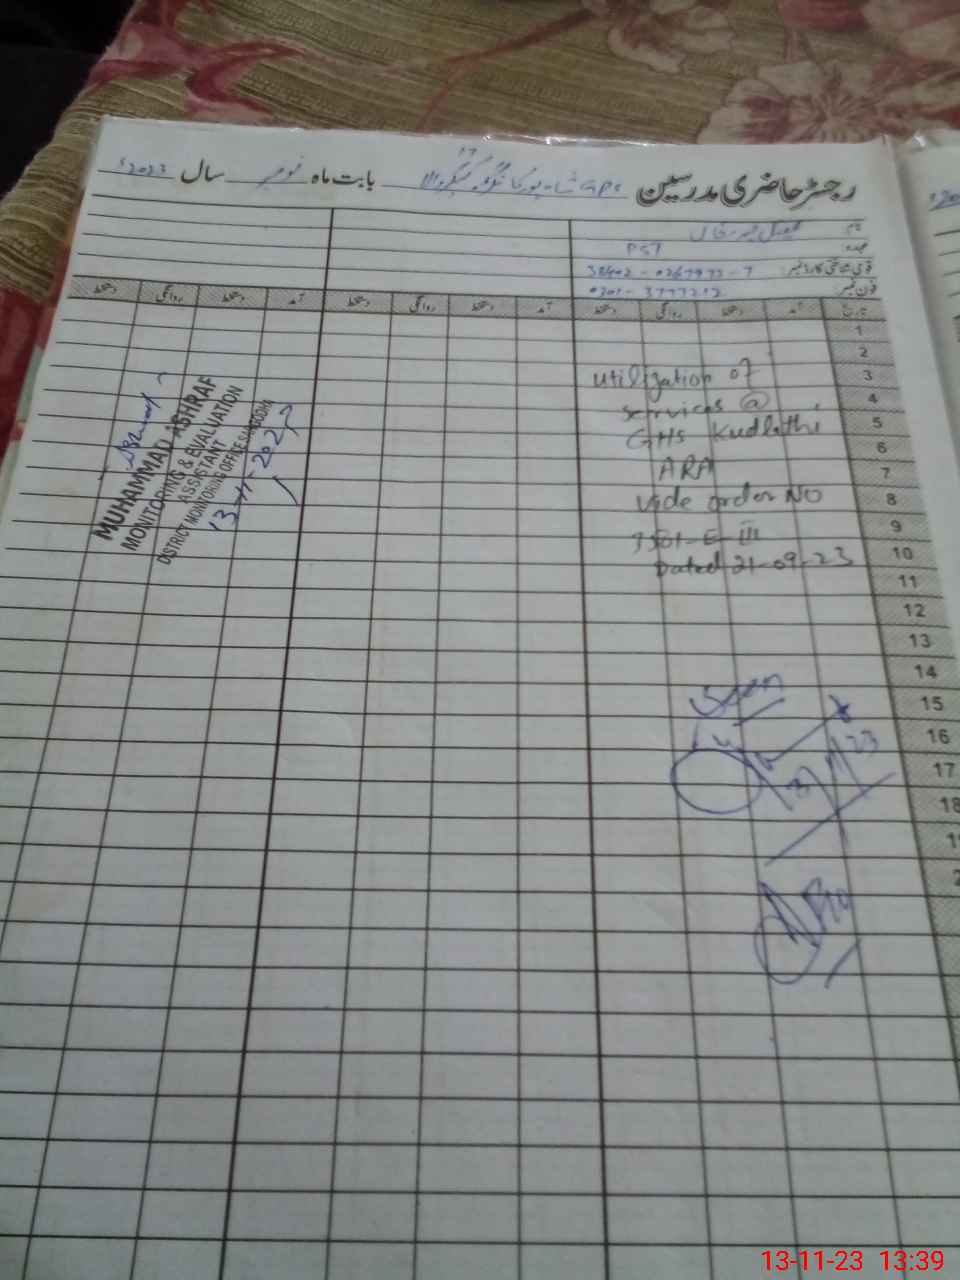 رجسٹر حاضری مدرسین GPS بابت ماہ نومبر سال 2023ء
نام
عہدہ PST
قومی شناختی کارڈ نمبر 38402-0267973-7
فون نمبر
تاریخ آمد دستخط روانگی دستخط آمد دستخط روانگی دستخط آمد دستخط روانگی دستخط
1
2
3
4
5
6
7
8
9
10
11
12
13
14
15
16
17
18
utilization of
services @
GHS Kudlathi
ARA
vide order NO
3581-E-III
Dated 21-09-23
MUHAMMAD ASHRAF
MONITORING & EVALUATION
ASSISTANT
DISTRICT MONITORING OFFICE SARGODHA
13-11-2023
Seen
13-11-23 13:39